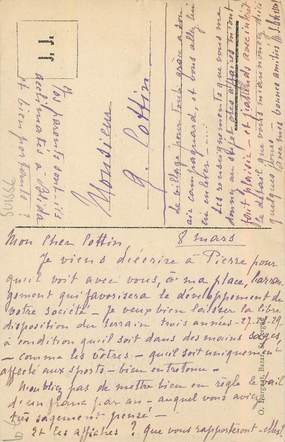 Mon Cher Cottin 8 mars
Je viens d'écrire à Pierre pour
qu'il voit avec vous, à ma place, l'arran
gement qui favorisera le développement de
votre société - Je veux bien laisser la libre
disposition du terrain trois années - 27.28.29.
à condition qu'il soit dans des mains sages,
- comme les vôtres - qu'il soit uniquement
affecté aux sports - bien entretenu -
N'oubliez pas de mettre bien en règle le bail
d'un franc par an - auquel vous aviez
très sagement pensé -
Et les affiches ? Que vous rapporteront-elles ?
le village pour tous grâce à son
air campagnard, et vous allez
en enlever
les renseignements que vous me
donnez au sujet des affiches m'ont
font plaisir - et j'attends avec intérêt
le détail que vous m'annoncez d'ici
quelques jours
avec mes bonnes amitiés
Monsieur
G. Cottin
Vos parents sont-ils
acclimatés à
et bien portants ?
J. J.